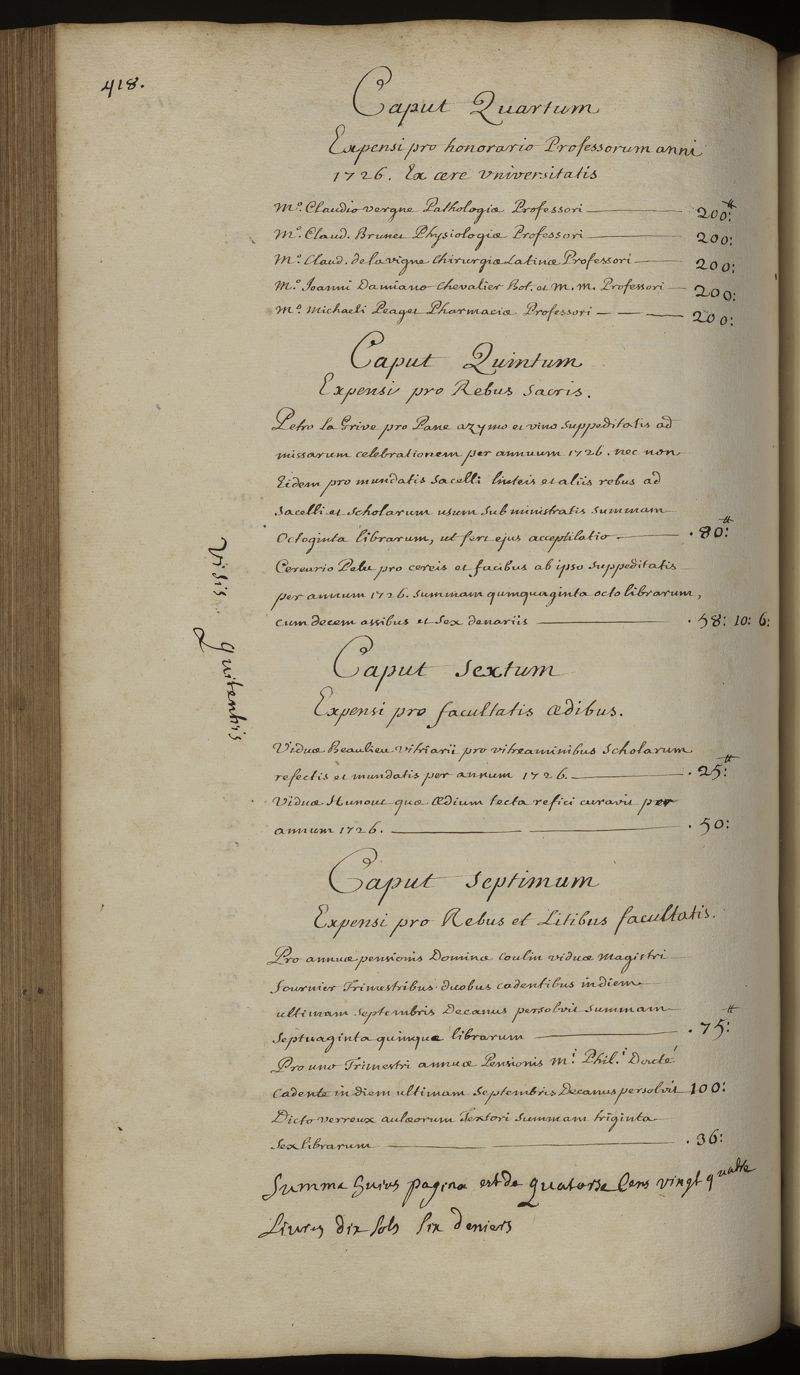 418.
Caput Quartum
Expensi pro honorario Professorum anni
1726. Ex aere Vniversitatis
M.º Claudio Vergne Pathologiæ Professori 200.tt
M.º Claud. Brunet Physiologiæ Professori 200:
M.º Claud. de la vigne Chirurgiæ Latinæ Professori 200:
M.º Joanni Damiano Chevalier Bot. et M. M. Professori 200:
M.º Michaeli Peaget Pharmaciæ Professori 200:
Caput Quintum
Expensi pro Rebus Sacris.
Petro la Grive pro Pane azymo et vino Suppeditatis ad
missarum celebrationem per annuum 1726. nec non
Eidem pro mundatis Sacelli linteis et aliis rebus ad
Sacelli et Scholarum usum Sub ministratis Summam
Octoginta librarum, ut fert ejus acceptilatio . 80:tt
Cereario Pelu pro cereis et facibus ab ipso Suppeditatis
per annum 1726. Summam qumquaginta octo librarum,
cum decem assibus et Sex denariis . 58: 10: 6:
Visis Quitentiis
Caput Sextum
Expensi pro facultatis ædibus.
Viduæ Beaulieu Vitriarii pro vitreaminibus Scholarum
refectis et mundatis per annum 1726. . 25:tt
Viduæ Hunout quæ Ædium tecta refici curavit per
annum 1726. . 50:
Caput Septimum
Expensi pro Rebus et Litibus facultatis.
Pro annuæ pensionis Dominæ Coulin viduæ Magistri
Fournier Trimestribus duobus cadentibus in diem
ultimam Septembris Decanus persolvit Summam
Septuaginta quimque librarum . 75:tt
Pro uno Trimestri annuæ Pensionis M.i Phil.i Docté
Cadente in diem ultimam Septembris Decanus persolvit 100:
Dicto verreux aulæorum Textori Summam triginta
Sex librarum . 36:
Summa huius pagina est de quatorse Cens vingt quatre
Livres dix sols Six deniers